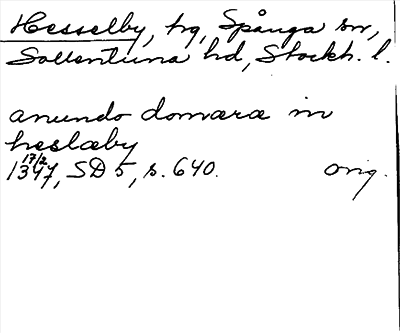 Hesselby, trg, Spånga sn,
Sollentuna hd, Stockh. l.
anundo domaræ in
heslæby
17/2
1347, SD 5, s. 640. orig.